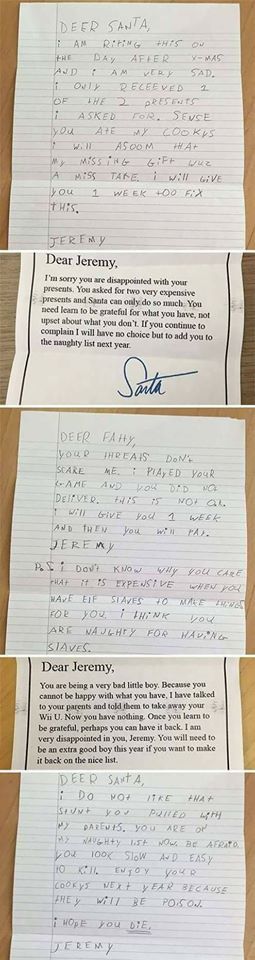 DEER SANTA,
I AM RITING THIS ON
THE DAY AFTER X-MAS
AND I AM VERY SAD.
I ONLY RECEEVED 1
OF THE 2 PRESENTS
I ASKED FOR. SENSE
YOU ATE MY COOKYS
I WILL ASOOM THAT
MY MISSING GIFT WUZ
A MISS TAKE. I WILL GIVE
YOU 1 WEEK TOO FIX
THIS.
JEREMY
Dear Jeremy,
I'm sorry you are disappointed with your
presents. You asked for two very expensive
presents and Santa can only do so much. You
need to learn to be grateful for what you have, not
upset about what you don't. If you continue to
complain I will have no choice but to add you to
the naughty list next year.
Santa
DEER FATTY,
YOUR THREATS DON'T
SCARE ME. I PLAYED YOUR
GAME AND YOU DID NOT
DELIVER. THIS IS NOT OK.
I WILL GIVE YOU 1 WEEK
AND THEN YOU WILL PAY.
JEREMY
P.S. I DON'T KNOW WHY YOU CARE
THAT IT IS EXPENSIVE WHEN YOU
HAVE ELF SLAVES TO MAKE THINGS
FOR YOU. I THINK YOU
ARE NAUGHTY FOR HAVING
SLAVES.
Dear Jeremy,
You are being a very bad little boy. Because you
cannot be happy with what you have, I have talked
to your parents and told them to take away your
Wii U. Now you have nothing. Once you learn to
be grateful, perhaps you can have it back. I am
very disappointed in you, Jeremy. You will need to
be an extra good boy this year if you want to make
it back on the nice list.
DEER SANTA,
I DO NOT LIKE THAT
STUNT YOU PULLED WITH
MY PARENTS. YOU ARE ON
MY NAUGHTY LIST NOW. BE AFRAID.
YOU LOOK SLOW AND EASY
TO KILL. ENJOY YOUR
COOKYS NEXT YEAR BECAUSE
THEY WILL BE POISON.
I HOPE YOU DIE.
JEREMY